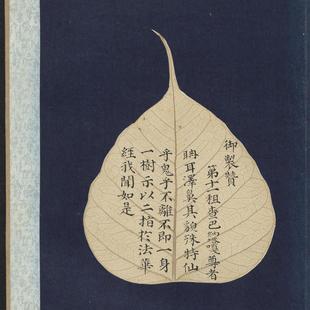 御製贊
第十一祖查巴納塔嘎尊者
聃耳澤鼻其貌殊特仙
乎鬼乎不離不即一身
一樹示以二指於法華
經我聞如是